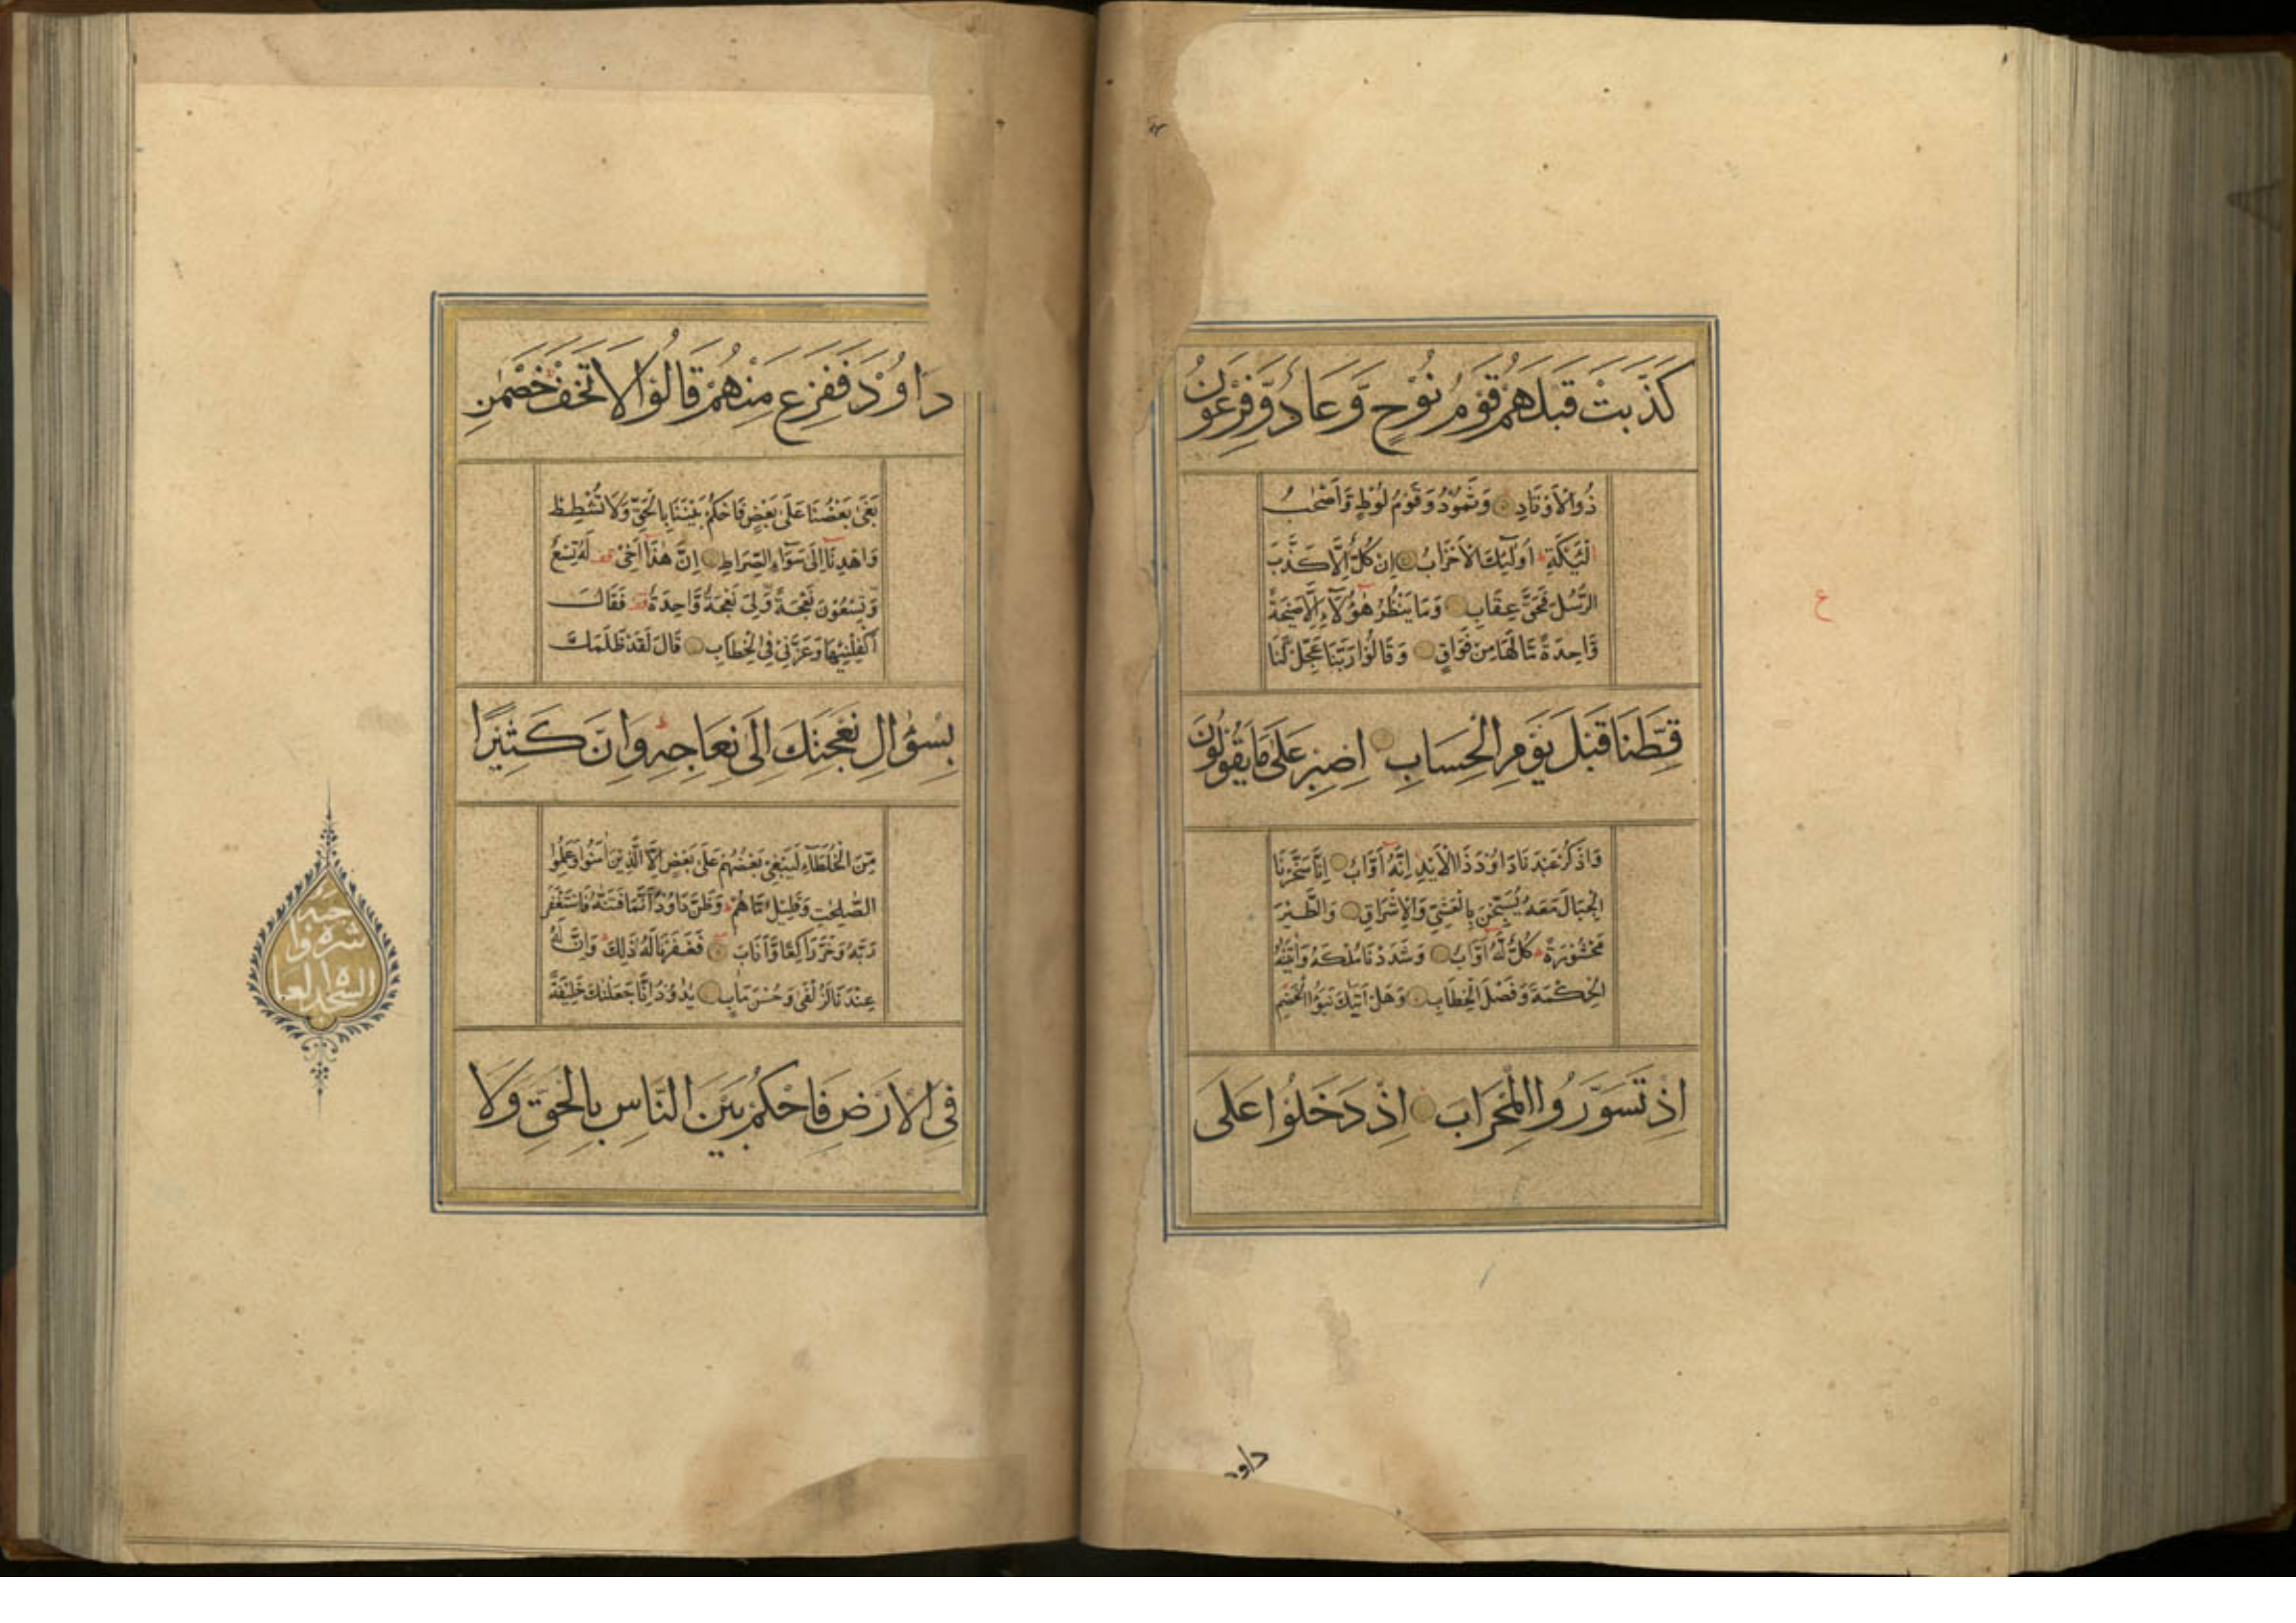 كَذَّبَتْ قَبْلَهُمْ قَوْمُ نُوْحٍ وَّعَادٌ وَّفِرْعَوْنُ
ذُوالْاَوْتَادِ وَثَمُوْدُ وَقَوْمُ لُوْطٍ وَّاَصْحٰبُ
لْئَيْكَةِ اُولٰٓئِكَ الْاَحْزَابُ اِنْ كُلٌّ اِلَّا كَذَّبَ
الرُّسُلَ فَحَقَّ عِقَابِ وَمَا يَنْظُرُ هٰٓؤُلَآءِ اِلَّا صَيْحَةً
وَّاحِدَةً مَّا لَهَا مِنْ فَوَاقٍ وَقَالُوْا رَبَّنَا عَجِّلْ لَّنَا
قِطَّنَا قَبْلَ يَوْمِ الْحِسَابِ اِصْبِرْ عَلٰى مَا يَقُوْلُوْنَ
وَاذْكُرْ عَبْدَنَا دَاوٗدَ ذَا الْاَيْدِ اِنَّهٗٓ اَوَّابٌ اِنَّا سَخَّرْنَا
الْجِبَالَ مَعَهٗ يُسَبِّحْنَ بِالْعَشِيِّ وَالْاِشْرَاقِ وَالطَّيْرَ
مَحْشُوْرَةً كُلٌّ لَّهٗٓ اَوَّابٌ وَشَدَدْنَا مُلْكَهٗ وَاٰتَيْنٰهُ
الْحِكْمَةَ وَفَصْلَ الْخِطَابِ وَهَلْ اَتٰىكَ نَبَؤُا الْخَصْمِ
اِذْ تَسَوَّرُوا الْمِحْرَابَ اِذْ دَخَلُوْا عَلٰى
ع
داود
دَاوٗدَ فَفَزِعَ مِنْهُمْ قَالُوْا لَا تَخَفْ خَصْمٰنِ
بَغٰى بَعْضُنَا عَلٰى بَعْضٍ فَاحْكُمْ بَيْنَنَا بِالْحَقِّ وَلَا تُشْطِطْ
وَاهْدِنَآ اِلٰى سَوَآءِ الصِّرَاطِ اِنَّ هٰذَآ اَخِيْ قف لَهٗ تِسْعٌ
وَّتِسْعُوْنَ نَعْجَةً وَّلِيَ نَعْجَةٌ وَّاحِدَةٌ قف فَقَالَ
اَكْفِلْنِيْهَا وَعَزَّنِيْ فِي الْخِطَابِ قَالَ لَقَدْ ظَلَمَكَ
بِسُؤَالِ نَعْجَتِكَ اِلٰى نِعَاجِهٖ وَاِنَّ كَثِيْرًا
مِّنَ الْخُلَطَآءِ لَيَبْغِيْ بَعْضُهُمْ عَلٰى بَعْضٍ اِلَّا الَّذِيْنَ اٰمَنُوْا وَعَمِلُوا
الصّٰلِحٰتِ وَقَلِيْلٌ مَّا هُمْ وَظَنَّ دَاوٗدُ اَنَّمَا فَتَنّٰهُ فَاسْتَغْفَرَ
رَبَّهٗ وَخَرَّ رَاكِعًا وَّاَنَابَ فَغَفَرْنَا لَهٗ ذٰلِكَ وَاِنَّ لَهٗ
عِنْدَنَا لَزُلْفٰى وَحُسْنَ مَاٰبٍ يٰدَاوٗدُ اِنَّا جَعَلْنٰكَ خَلِيْفَةً
فِي الْاَرْضِ فَاحْكُمْ بَيْنَ النَّاسِ بِالْحَقِّ وَلَا